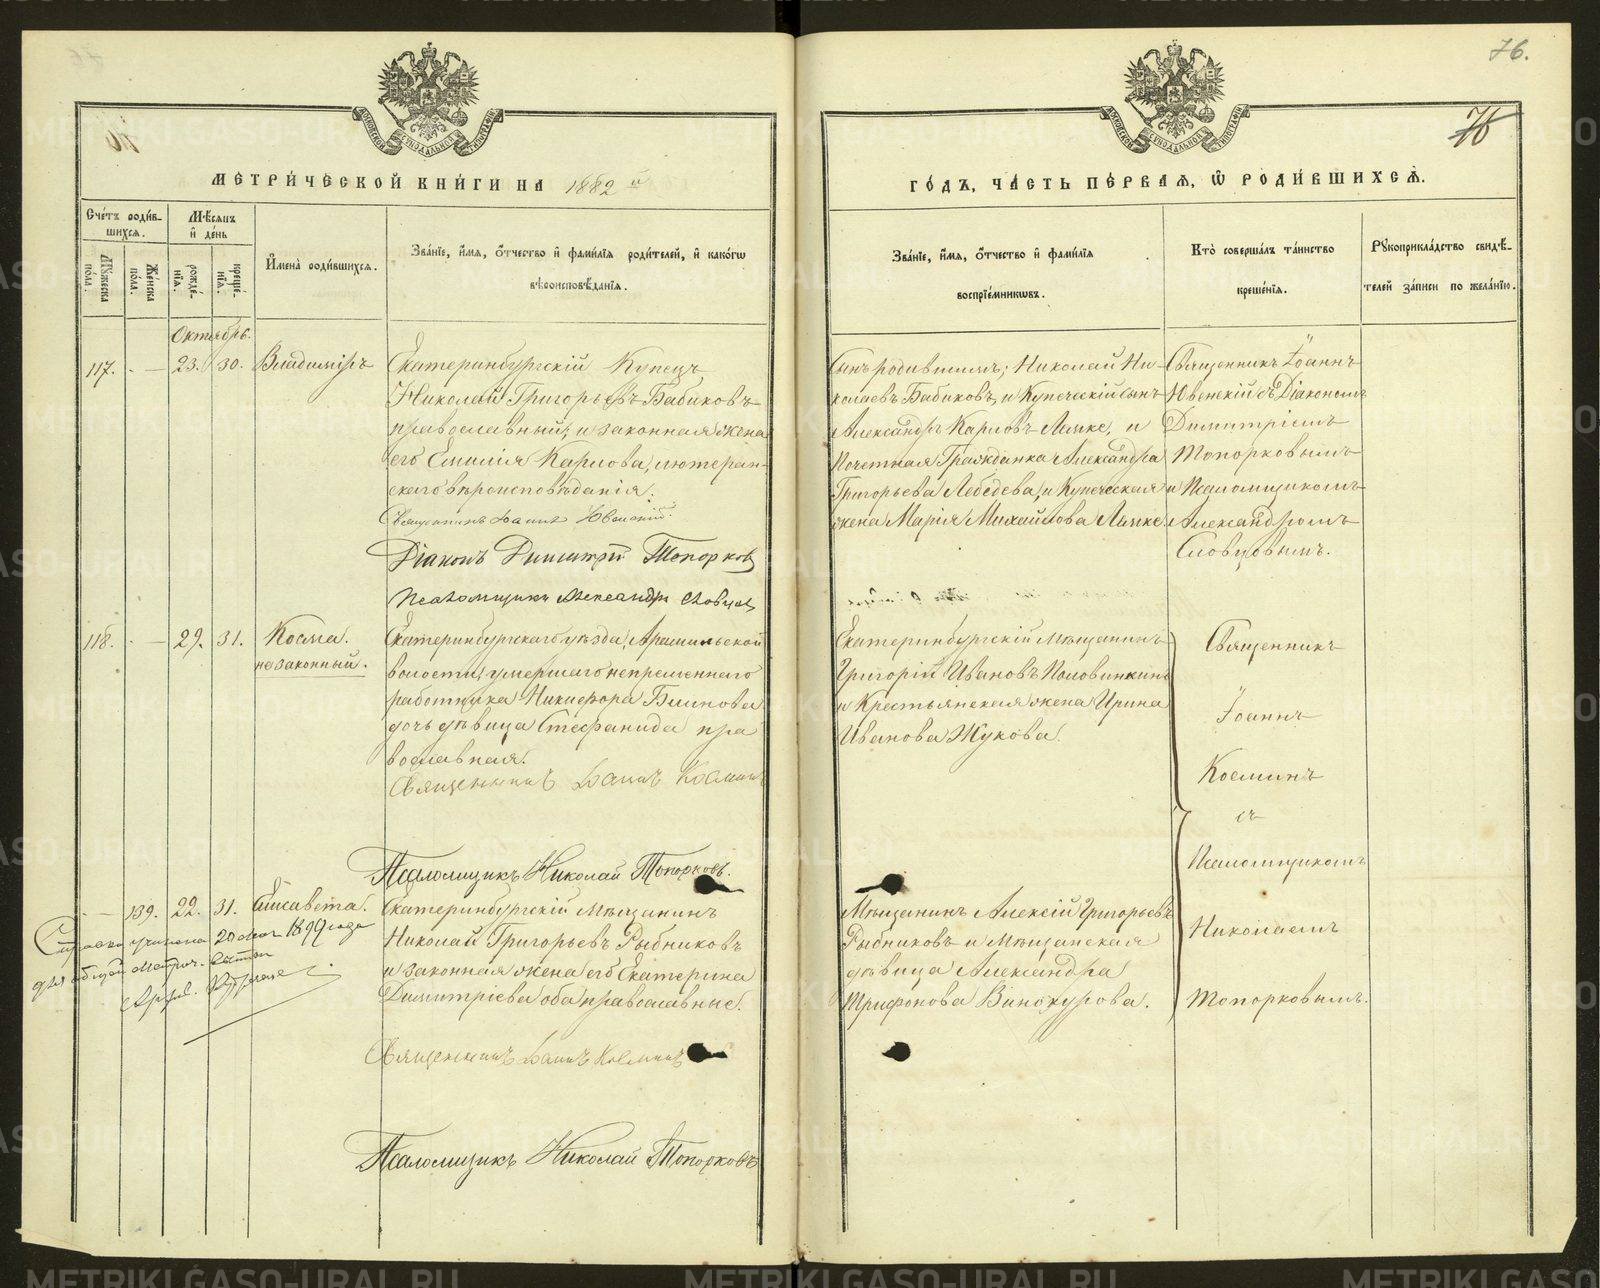 76.
76
МЕТРИЧЕСКОЙ КНИГИ НА 1882 й
ГОДЪ, ЧАСТЬ ПЕРВАЯ, Ѡ РОДИВШИХСЯ.
Счетъ родив-
шихся.
Мужеска пола.
Женска пола.
Мѣсяцъ и день
рожде-нія.
креще-нія.
Имена родившихся.
Званіе, имя, отчество и фамилія родителей, и какогѡ
вѣроисповѣданія.
Званіе, имя, отчество и фамилія
воспріемникѡвъ.
Кто совершалъ таинство
крещенія.
Рукоприкладство свидѣ-
телей записи по желанію.
Октябрь.
117. - — 23. 30. Владиміръ
Екатеринбургскій Купецъ
Николай Григорьевъ Бабиковъ
православный, и законная жена
его Емилія Карлова, лютеран-
скаго вѣроисповѣданія.
Священникъ Іоаннъ Ювенскій.
Діаконъ Димитрій Топорковъ
Псаломщикъ Александръ Словцовъ
Сынъ родившимъ; Николай Ни-
колаевъ Бабиковъ, и Купеческій сынъ
Александръ Карловъ Лямке, и
Почетная Гражданка Александра
Григорьева Лебедева, и Купеческая
жена Марія Михайлова Лямке.
Священникъ Іоаннъ
Ювенскій съ Діакономъ
Димитріемъ
Топорковымъ
и Псаломщикомъ
Александромъ
Словцовымъ.
118. - — 29. 31. Косма.
незаконный.
Екатеринбургскаго уѣзда, Арамильской
волости, умершаго непременнаго
работника Никифора Блинова
дочь дѣвица Стефанида пра
вославная.
Священникъ Іоаннъ Косминъ
Псаломщикъ Николай Топорковъ.
Екатеринбургскій Мѣщанинъ
Григорій Ивановъ Половинкинъ
и Крестьянская жена Ирина
Иванова Жукова.
Священникъ
Іоаннъ
Косминъ
съ
Псаломщикомъ
Николаемъ
Топорковымъ.
— 139. 22. 31. Елисавета.
Справка учинена 20 1899 года
для
Екатеринбургскій Мѣщанинъ
Николай Григорьевъ Рыбниковъ
и законная жена его Екатерина
Димитріева оба православные.
Священникъ Іоаннъ Косминъ
Псаломщикъ Николай Топорковъ
Мѣщанинъ Алексій Григорьевъ
Рыбниковъ и Мѣщанская
дѣвица Александра
Трифонова Винокурова.
METRIKI.GASO-URAL.RU